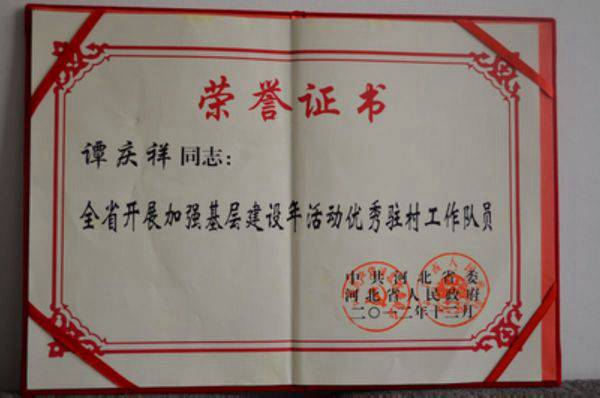 荣誉证书
谭庆祥同志：
全省开展加强基层建设年活动优秀驻村工作队员
中共河北省委
河北省人民政府
二〇一二年十二月